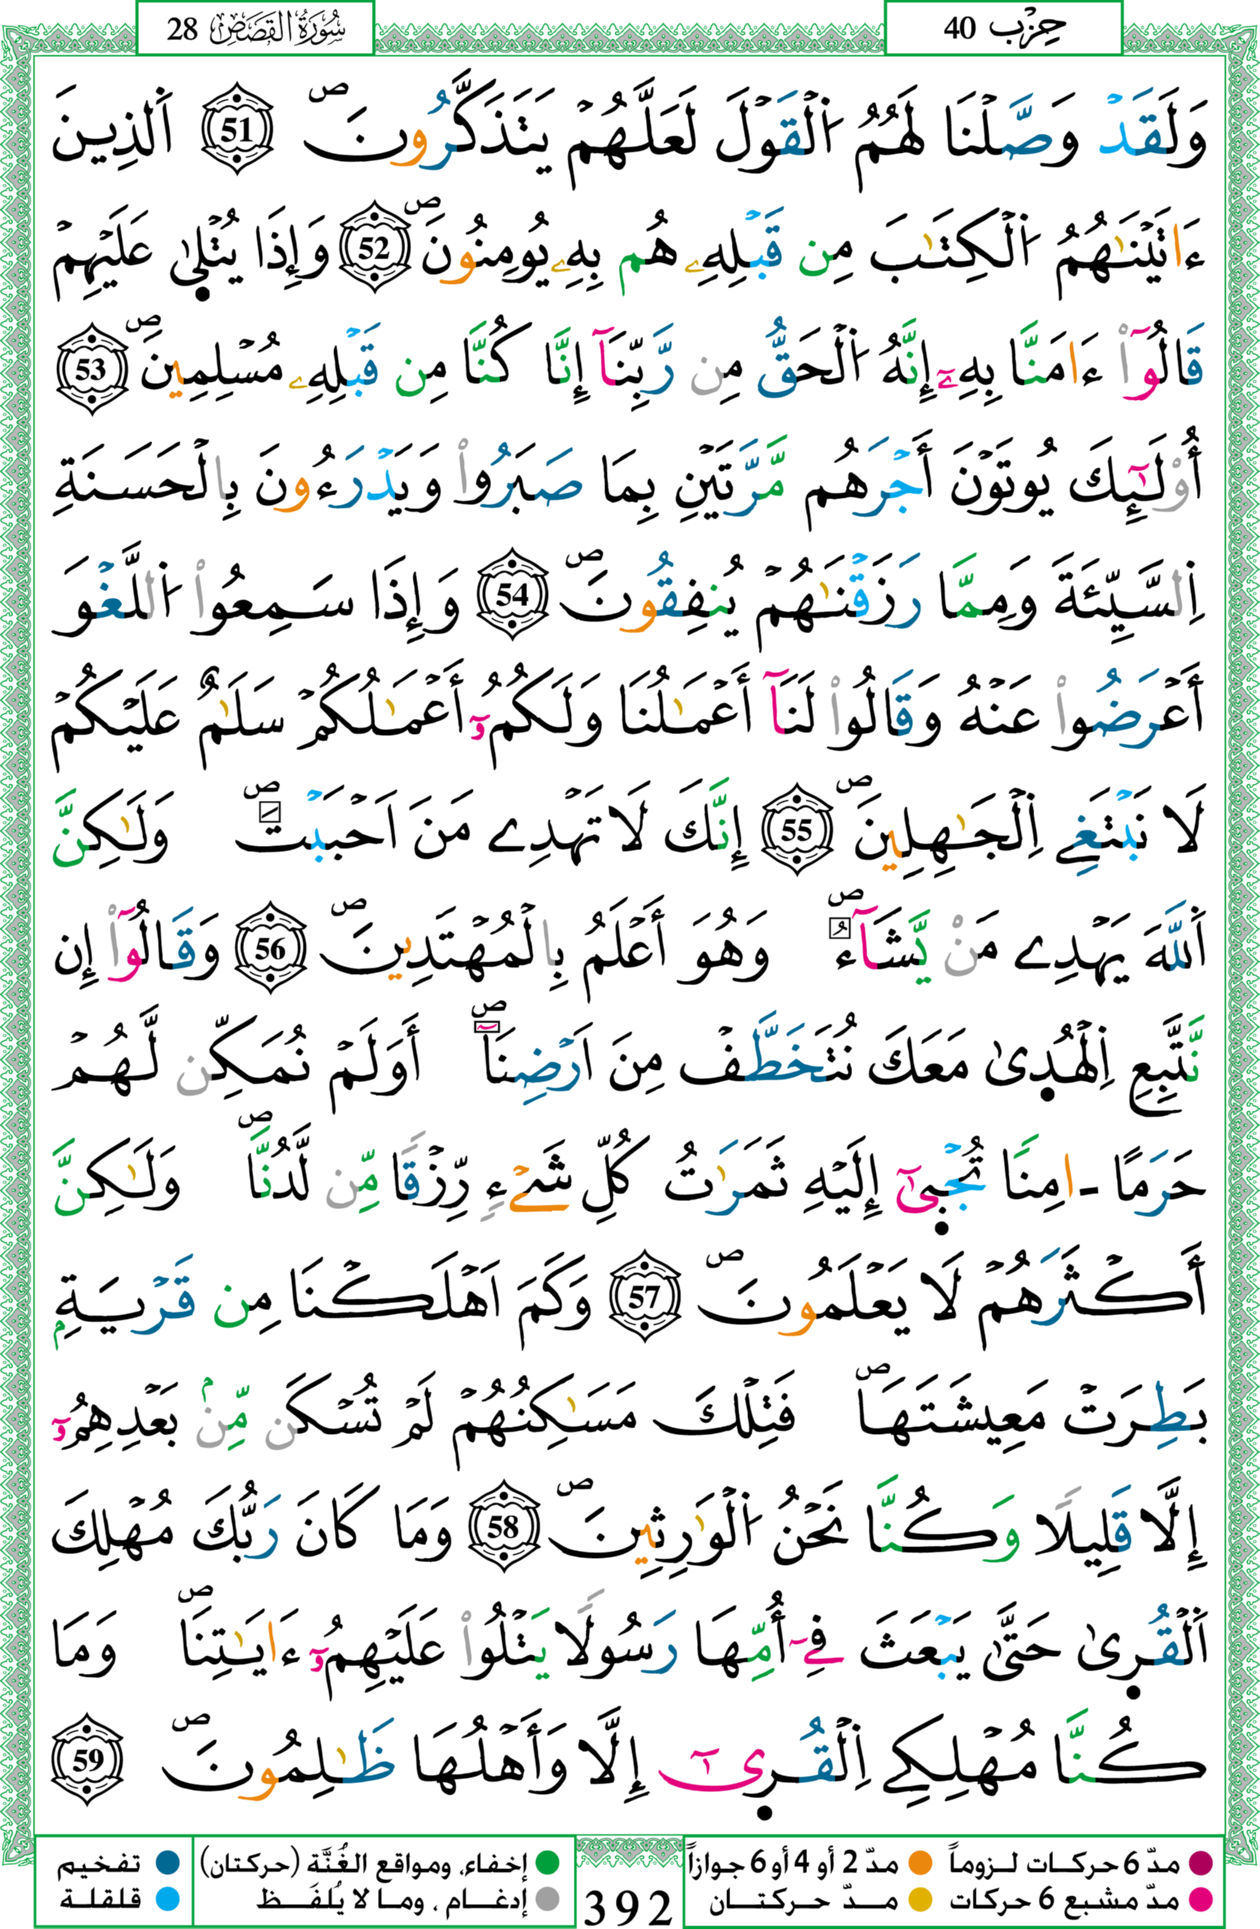 سُورَةُ القَصَصِ 28
حِزْب 40
وَلَقَدْ وَصَّلْنَا لَهُمُ اُ۬لْقَوْلَ لَعَلَّهُمْ يَتَذَكَّرُونَۖ 51 اَ۬لذِينَ
ءَاتَيْنَٰهُمُ اُ۬لْكِتَٰبَ مِن قَبْلِهِۦ هُم بِهِۦ يُومِنُونَۖ 52 وَإِذَا يُتْل۪يٰ عَلَيْهِمْ
قَالُوٓاْ ءَامَنَّا بِهِۦٓ إِنَّهُ اُ۬لْحَقُّ مِن رَّبِّنَآ إِنَّا كُنَّا مِن قَبْلِهِۦ مُسْلِمِينَۖ 53
أُوْلَٰٓئِكَ يُوتَوْنَ أَجْرَهُم مَّرَّتَيْنِ بِمَا صَبَرُواْ وَيَدْرَءُونَ بِالْحَسَنَةِ
اِ۬لسَّيِّئَةَ وَمِمَّا رَزَقْنَٰهُمْ يُنفِقُونَۖ 54 وَإِذَا سَمِعُواْ اُ۬للَّغْوَ
أَعْرَضُواْ عَنْهُ وَقَالُواْ لَنَآ أَعْمَٰلُنَا وَلَكُمُۥٓ أَعْمَٰلُكُمْ سَلَٰمٌ عَلَيْكُمْ
لَا نَبْتَغِے اِ۬لْجَٰهِلِينَۖ 55 إِنَّكَ لَا تَهْدِے مَنَ اَحْبَبْتَۖ وَلَٰكِنَّ
اَ۬للَّهَ يَهْدِے مَنْ يَّشَآءُۖ وَهُوَ أَعْلَمُ بِالْمُهْتَدِينَۖ 56 وَقَالُوٓاْ إِن
نَّتَّبِعِ اِ۬لْهُد۪يٰ مَعَكَ نُتَخَطَّفْ مِنَ اَرْضِنَآۖ أَوَلَمْ نُمَكِّن لَّهُمْ
حَرَماً اٰمِنَا تُجْب۪يٰٓ إِلَيْهِ ثَمَرَٰتُ كُلِّ شَےْءٍ رِّزْقًا مِّن لَّدُنَّاۖ وَلَٰكِنَّ
أَكْثَرَهُمْ لَا يَعْلَمُونَۖ 57 وَكَمَ اَهْلَكْنَا مِن قَرْيَةِۢ
بَطِرَتْ مَعِيشَتَهَاۖ فَتِلْكَ مَسَٰكِنُهُمْ لَمْ تُسْكَن مِّنۢ بَعْدِهِمُۥٓ
إِلَّا قَلِيلًا وَكُنَّا نَحْنُ اُ۬لْوَٰرِثِينَۖ 58 وَمَا كَانَ رَبُّكَ مُهْلِكَ
اَ۬لْقُر۪يٰ حَتَّىٰ يَبْعَثَ فِےٓ أُمِّهَا رَسُولًا يَتْلُواْ عَلَيْهِمُۥٓ ءَايَٰتِنَاۖ وَمَا
كُنَّا مُهْلِكِے اِ۬لْقُر۪يٰٓ إِلَّا وَأَهْلُهَا ظَٰلِمُونَۖ 59
مدّ 6 حركات لـزوماً مدّ 2 أو 4 أو 6 جوازاً إخفاء، ومواقع الغُنَّة (حركتان) تفخيم
مدّ مشبع 6 حركات مـدّ حـركتــان إدغـام ، ومـا لا يُلفَـظ قلقلة
392